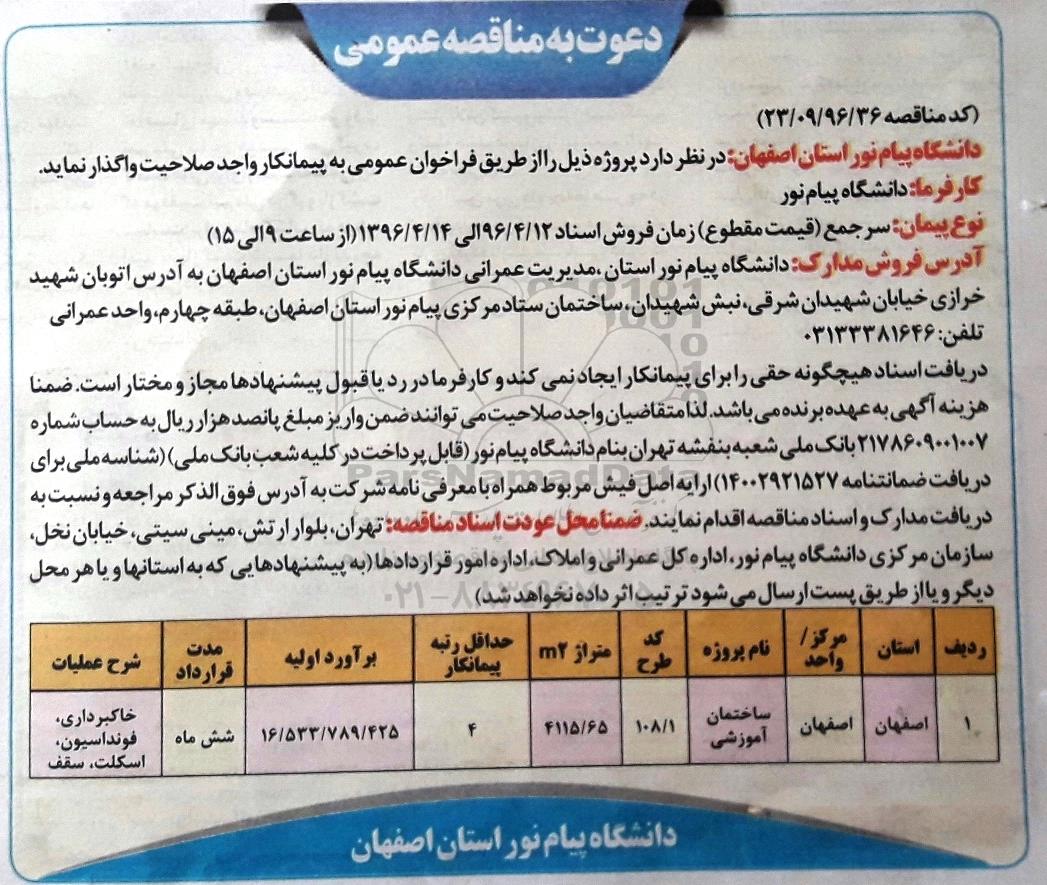 دعوت به مناقصه عمومی
(کد مناقصه ۲۳/۰۹/۹۶/۳۶)
دانشگاه پیام نور استان اصفهان: در نظر دارد پروژه ذیل را از طریق فراخوان عمومی به پیمانکار واجد صلاحیت واگذار نماید.
کارفرما: دانشگاه پیام نور
نوع پیمان: سرجمع (قیمت مقطوع) زمان فروش اسناد ۹۶/۴/۱۲الی ۱۳۹۶/۴/۱۴ (از ساعت ۹ الی ۱۵)
آدرس فروش مدارک: دانشگاه پیام نور استان ،مدیریت عمرانی دانشگاه پیام نور استان اصفهان به آدرس اتوبان شهید
خرازی خیابان شهیدان شرقی، نبش شهیدان ، ساختمان ستاد مرکزی پیام نور استان اصفهان، طبقه چهارم، واحد عمرانی
تلفن: ۰۳۱۳۳۳۸۱۶۴۶
دریافت اسناد هیچگونه حقی را برای پیمانکار ایجاد نمی کند و کارفرما در رد یا قبول پیشنهادها مجاز و مختار است. ضمنا
هزینه آگهی به عهده برنده می باشد. لذا متقاضیان واجد صلاحیت می توانند ضمن واریز مبلغ پانصد هزار ریال به حساب شماره
۲۱۷۸۶۰۹۰۰۱۰۰۷ بانک ملی شعبه بنفشه تهران بنام دانشگاه پیام نور (قابل پرداخت در کلیه شعب بانک ملی) (شناسه ملی برای
دریافت ضمانتنامه ۱۴۰۰۲۹۲۱۵۲۷) ارایه اصل فیش مربوط همراه با معرفی نامه شرکت به آدرس فوق الذکر مراجعه و نسبت به
دریافت مدارک و اسناد مناقصه اقدام نمایند. ضمنا محل عودت اسناد مناقصه: تهران، بلوار ارتش، مینی سیتی، خیابان نخل،
سازمان مرکزی دانشگاه پیام نور، اداره کل عمرانی و املاک، اداره امور قراردادها (به پیشنهادهایی که به استانها و یا هر محل
دیگر و یا از طریق پست ارسال می شود ترتیب اثر داده نخواهد شد)
ParsNamadData
ردیف استان مرکز/ واحد نام پروژه کد طرح متراژ m۲ حداقل رتبه پیمانکار برآورد اولیه مدت قرارداد شرح عملیات
۱ اصفهان اصفهان ساختمان آموزشی ۱۰۸/۱ ۴۱۱۵/۶۵ ۴ ۱۶/۵۳۳/۷۸۹/۴۲۵ شش ماه خاکبرداری، فونداسیون، اسکلت، سقف
دانشگاه پیام نور استان اصفهان